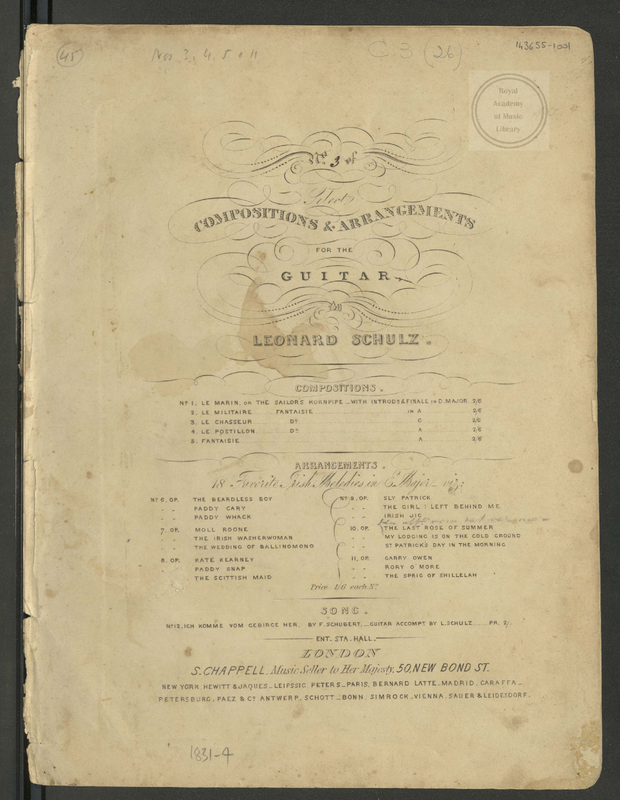 45
Nos 3, 4, 5 & 11
C.3 (26)
143655-1001
Royal
Academy
of Music
Library
No. 3 of
Select
COMPOSITIONS & ARRANGEMENTS
FOR THE
GUITAR,
BY
LEONARD SCHULZ.
COMPOSITIONS.
No 1. LE MARIN, OR THE SAILORS HORNPIPE _ WITH INTRODN & FINALE IN D. MAJOR. 2/6
2. LE MILITAIRE FANTAISIE IN A 2/6
3. LE CHASSEUR Do C 2/6
4. LE POSTILLON Do A 2/6
5. FANTAISIE A 3/6
ARRANGEMENTS.
18 Favorite Irish Melodies in C Major _ viz:
No 6. OP. THE BEARDLESS BOY
" " PADDY CARY
" " PADDY WHACK
7. OP. MOLL ROONE
" " THE IRISH WASHERWOMAN
" " THE WEDDING OF BALLINOMONO
8. OP. KATE KEARNEY
" " PADDY SNAP
" " THE SCITTISH MAID
No 9. OP. SLY PATRICK
" " THE GIRL I LEFT BEHIND ME
" " IRISH JIG
10. OP. THE LAST ROSE OF SUMMER
" " MY LODGING IS ON THE COLD GROUND
" " ST PATRICK'S DAY IN THE MORNING
11. OP. GARRY OWEN
" " RORY O'MORE
" " THE SPRIG OF SHILLELAH
Price 1/6 each No
SONG.
No 12. ICH KOMME VOM GEBIRGE HER, BY F. SCHUBERT, _ GUITAR ACCOMPT BY L. SCHULZ PR. 2/.
ENT. STA. HALL.
LONDON
S. CHAPPELL, Music Seller to Her Majesty, 50, NEW BOND ST.
NEW YORK HEWITT & JAQUES _ LEIPSSIC, PETERS _ PARIS, BERNARD LATTE _ MADRID, CARAFFA _
PETERSBURG, PAEZ & Co ANTWERP, SCHOTT _ BONN, SIMROCK _ VIENNA, SAUER & LEIDESDORF.
1831-4